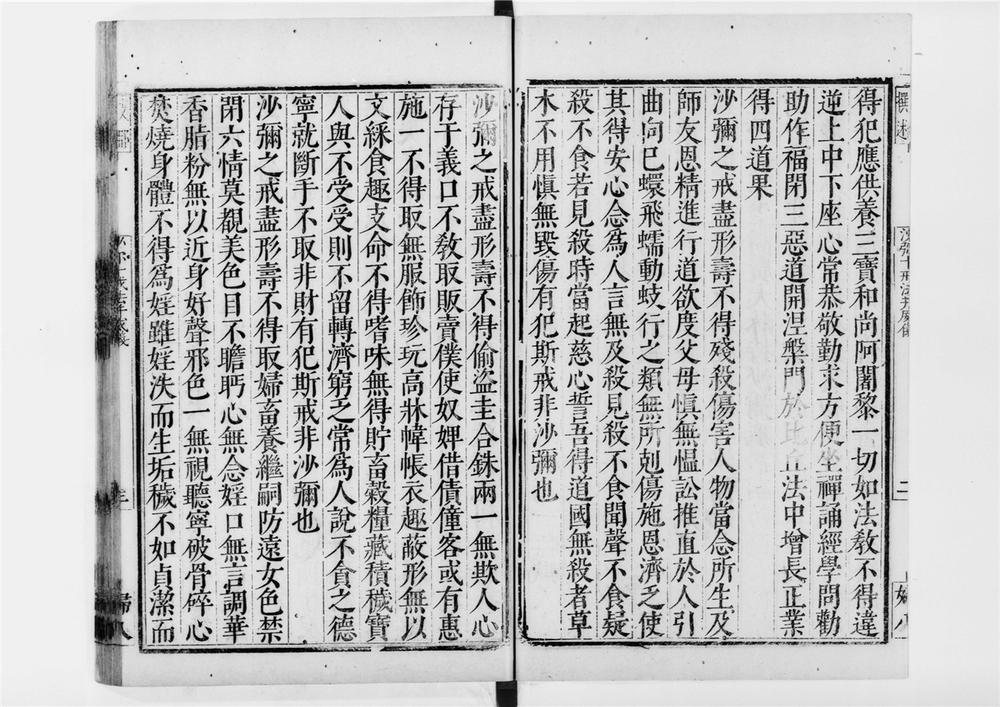 得犯應供養三寶和尚阿闍黎一切如法教不得違
逆上中下座心常恭敬勤求方便坐禪誦經學問勸
助作福閉三惡道開涅槃門於比丘法中增長正業
得四道果
沙彌之戒盡形壽不得殘殺傷害人物當念所生及
師友恩精進行道欲度父母慎無慍訟推直於人引
曲向已蠉飛蠕動蚑行之類無所剋傷施恩濟乏使
其得安心念為人言無及殺見殺不食聞聲不食疑
殺不食若見殺時當起慈心誓吾得道國無殺者草
木不用慎無毀傷有犯斯戒非沙彌也
沙彌之戒盡形壽不得偷盜圭合銖兩一無欺人心
存于義口不敎取販賣僕使奴婢借債僮客或有惠
施一不得取無服飾珍玩高牀幃帳衣趣蔽形無以
文綵食趣支命不得嗜味無得貯畜穀糧藏積穢寶
人與不受受則不留轉濟窮乏常為人說不貪之德
寧就斷手不取非財有犯斯戒非沙彌也
沙彌之戒盡形壽不得取婦畜養繼嗣防遠女色禁
閉六情莫覩美色目不瞻眄心無念婬口無言調華
香脂粉無以近身好聲邪色一無視聽寧破骨碎心
焚燒身體不得為婬雖婬泆而生垢穢不如貞潔而